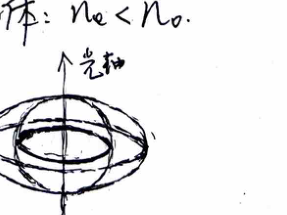 体: nₑ < nₒ.
光轴